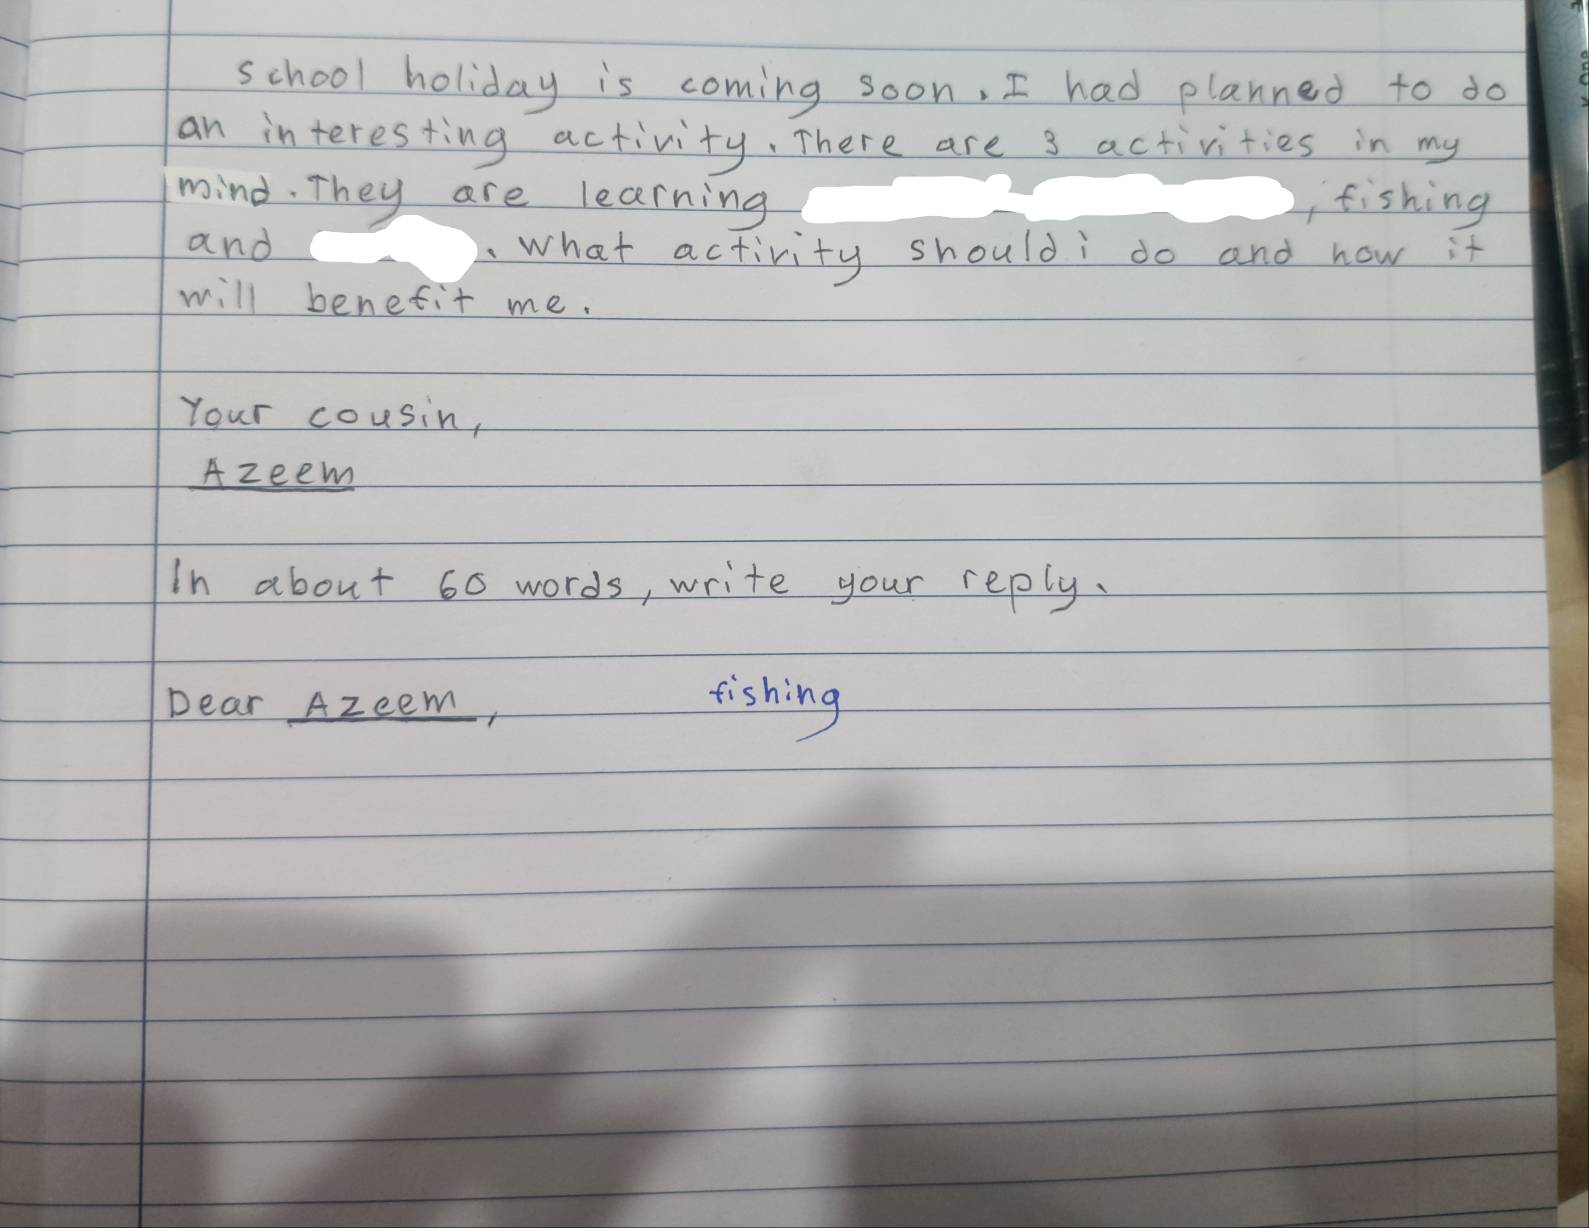 school holiday is coming soon. I had planned to do
an interesting activity. There are 3 activities in my
mind. They are learning , fishing
and . What activity should i do and how it
will benefit me.
Your cousin,
Azeem
In about 60 words, write your reply.
Dear Azeem, fishing